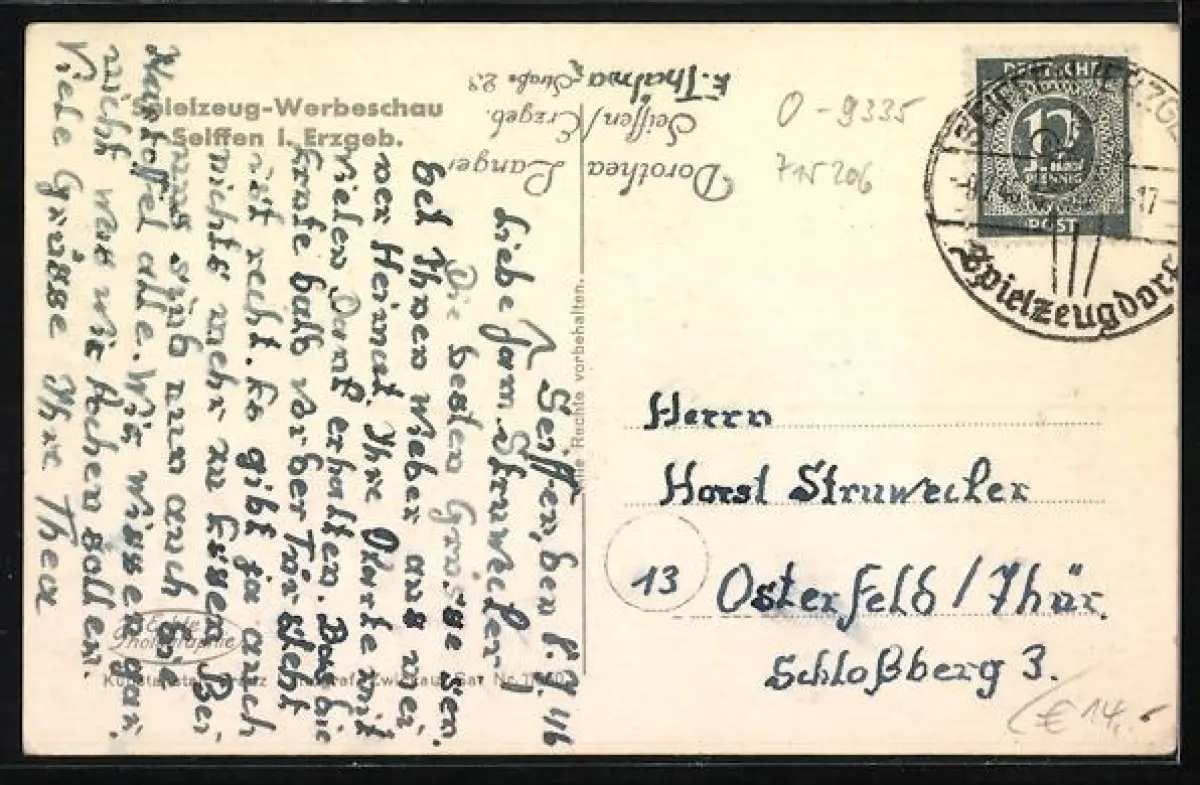 Spielzeug-Werbeschau
Seiffen i. Erzgeb.
Dorothea Langer
Seiffen / Erzgeb.
E. Thälma Straße 23
O - 9335
7W206
DEUTSCHE
12
PFENNIG
POST
SEIFFEN ERZGEB
17
Spielzeugdorf
Alle Rechte vorbehalten.
Seiffen, den 8.9.46
Liebe Fam. Struwecker!
Die besten Grüsse sen
det Ihnen wieder aus mei
ner Heimat. Ihre Karte mit
vielen Dank erhalten. Das die
Ernte bald vorber ist
mit recht. Es gibt ja auch
nichts mehr zu Essen. Bei
uns sind nun auch die
Kartoffel alle. Wir wissen gar
nicht was wir kochen sollen.
Viele Grüsse Ihre Thea
Herrn
Horst Struwecker
13 Osterfeld / Thür.
Schloßberg 3.
Echte Photographie
€ 14,-